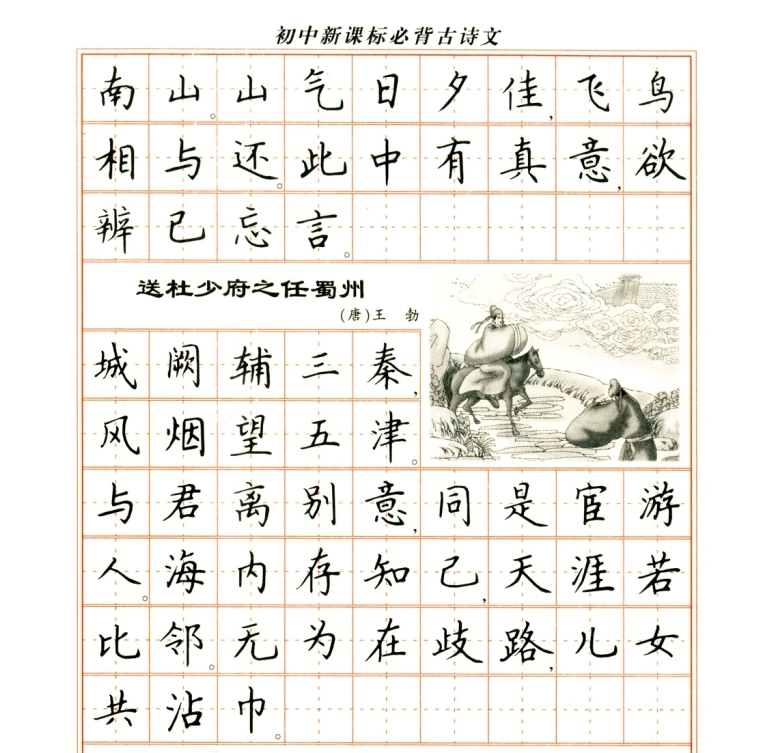 初中新课标必背古诗文
南山。山气日夕佳,飞鸟
相与还。此中有真意,欲
辨已忘言。
送杜少府之任蜀州
(唐)王 勃
城阙辅三秦,
风烟望五津。
与君离别意,同是宦游
人。海内存知己,天涯若
比邻。无为在歧路,儿女
共沾巾。